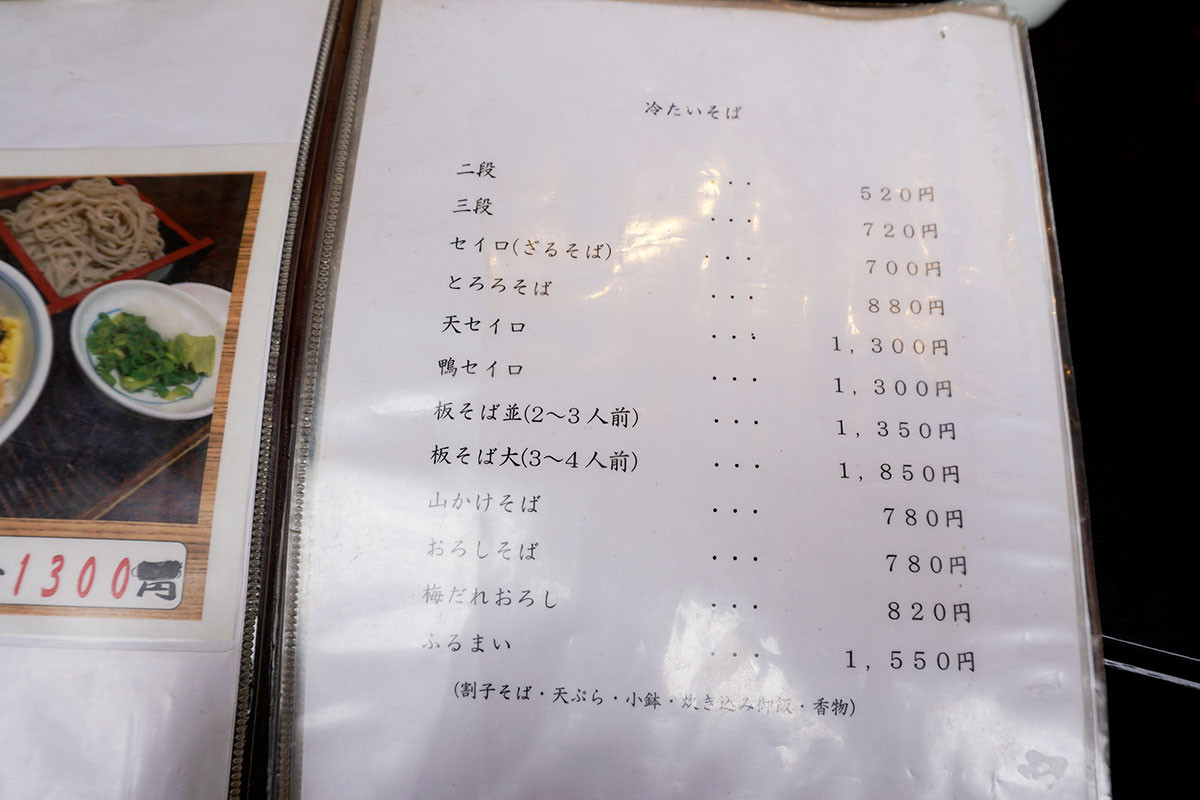 冷たいそば
二段 ・・ 520円
三段 ・・・ 720円
セイロ(ざるそば) ・・・ 700円
とろろそば ・・・ 880円
天セイロ ・・・ 1,300円
鴨セイロ ・・・ 1,300円
板そば並(2〜3人前) ・・・ 1,350円
板そば大(3〜4人前) ・・・ 1,850円
山かけそば ・・・ 780円
おろしそば ・・・ 780円
梅だれおろし ・・・ 820円
ふるまい ・・・ 1,550円
(割子そば・天ぷら・小鉢・炊き込み御飯・香物)
1300円